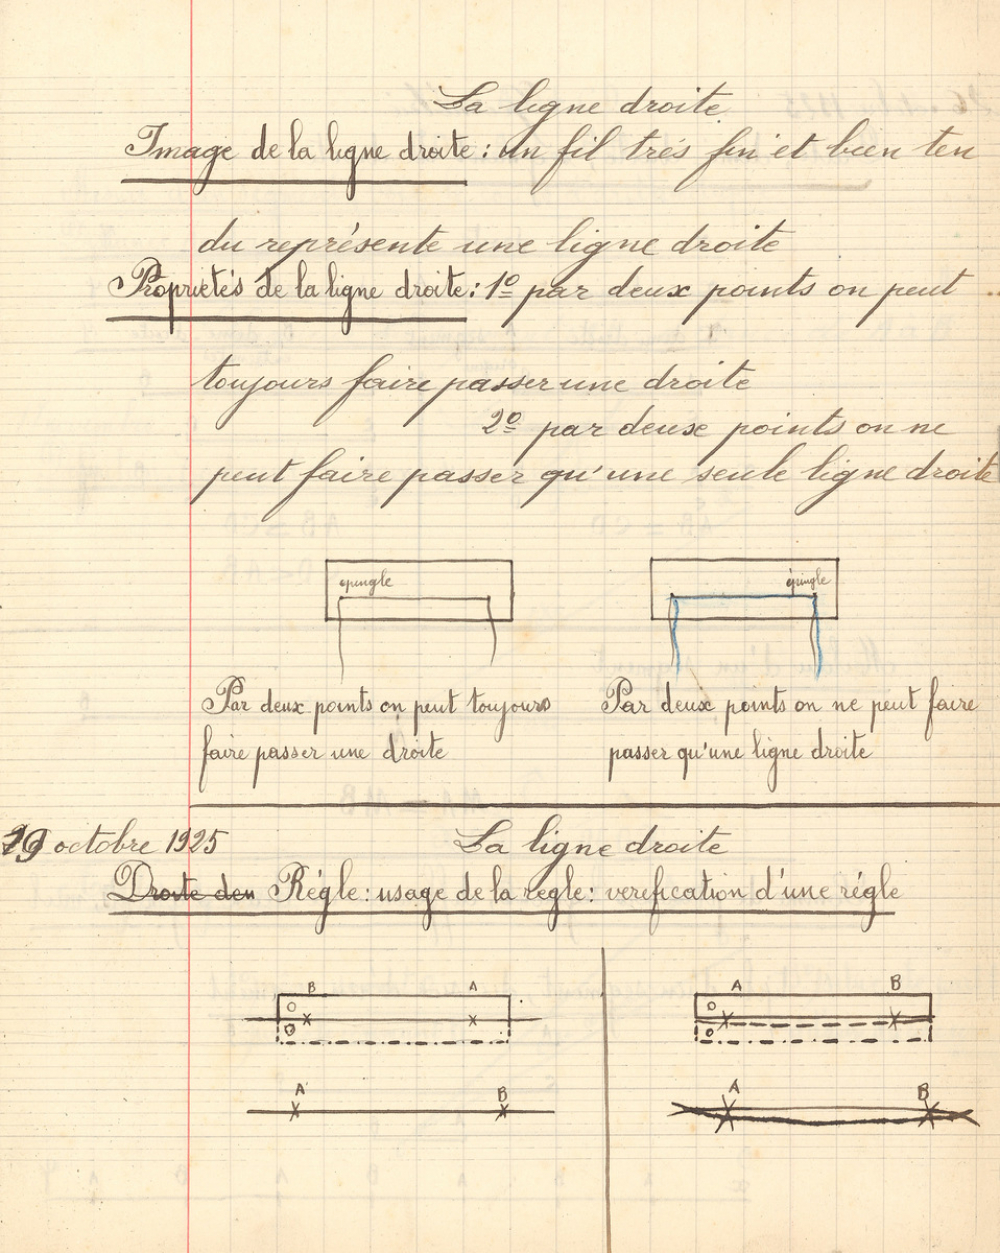 La ligne droite
Image de la ligne droite : un fil très fin et bien ten
du représente une ligne droite
Propriétés de la ligne droite : 1º par deux points on peut
toujours faire passer une droite
2º par deux points on ne
peut faire passer qu'une seule ligne droite
épingle épingle
Par deux points on peut toujours
faire passer une droite
Par deux points on ne peut faire
passer qu'une ligne droite
19 octobre 1925 La ligne droite
Droite den Régle : usage de la règle : verification d'une régle
B A A B
A B A B